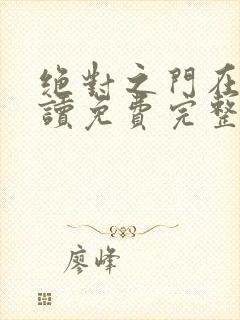 絕對之門在
讀免費完整
廖峰